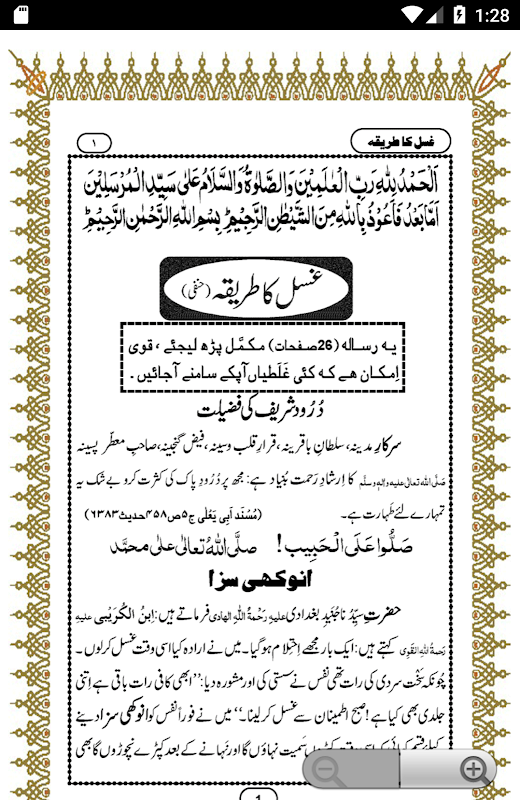 1:28
غسل کا طریقہ
۱
اَلْحَمْدُ لِلّٰهِ رَبِّ الْعٰلَمِیْنَ وَالصَّلٰوۃُ وَالسَّلَامُ عَلٰی سَیِّدِ الْمُرْسَلِیْنَ
اَمَّا بَعْدُ فَاَعُوْذُ بِاللّٰهِ مِنَ الشَّیْطٰنِ الرَّجِیْمِ ؕ بِسْمِ اللّٰهِ الرَّحْمٰنِ الرَّحِیْمِ ؕ
غسل کا طریقہ (حنفی)
یہ رسالہ (26صفحات) مکمَّل پڑھ لیجئے ، قوی
اِمکان ھے کہ کئی غَلَطیاں آپکے سامنے آجائیں ۔
دُرُود شریف کی فضیلت
سرکارِ مدینہ، سلطانِ باقرینہ، قرارِ قلب و سینہ، فیض گنجینہ، صاحبِ معطّر پسینہ
صَلَّی اللہُ تعالٰی علیہ واٰلہٖ وسلَّم کا اِرشادِ رَحمت بُنیاد ہے: مجھ پر دُرُودِ پاک کی کثرت کرو بے شک یہ
تمہارے لئے طَہارت ہے۔ (مُسْنَد اَبِی یَعْلٰی ج۵ص۴۵۸حدیث۶۳۸۳)
صَلُّوْا عَلَی الْحَبِیْب ! صلَّی اللہُ تعالٰی علٰی محمَّد
انوکھی سزا
حضرتِ سیِّدُنا جُنَید بغدادی علیہ رَحْمَۃُ اللہِ الھادی فرماتے ہیں: اِبنُ الْکُرَیْبِی علیہ
رَحمۃُ اللہِ القَوِی کہتے ہیں: ایک بار مجھے اِحتِلام ہوگیا۔ میں نے ارادہ کیا اسی وقت غسل کرلوں۔
چُونکہ سَخْت سردی کی رات تھی نفس نے سستی کی اور مشورہ دیا: ’’ابھی کافی رات باقی ہے اِتنی
جلدی بھی کیا ہے! صبح اطمینان سے غسل کرلینا۔‘‘ میں نے فوراً نفس کو انوکھی سزا دینے
سَمیت نہاؤں گا اور نہانے کے بعد کپڑے نچوڑوں گا بھی
1